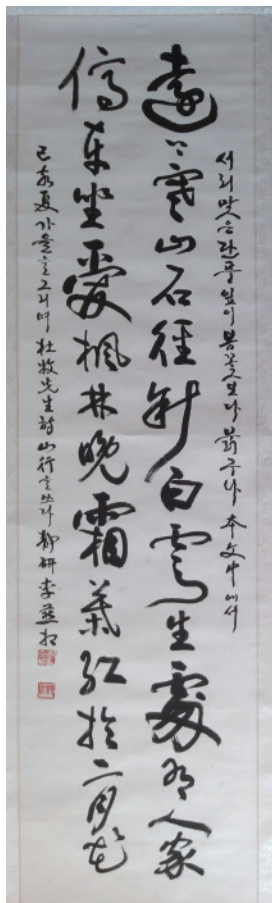 서리 맞은 단풍잎이 봄꽃보다 붉구나 本文中에서
遠上寒山石徑斜白雲生處有人家
停車坐愛楓林晚霜葉紅於二月花
己亥夏 가을을 그리며 杜牧先生詩 山行을 쓰다 靜硏 李